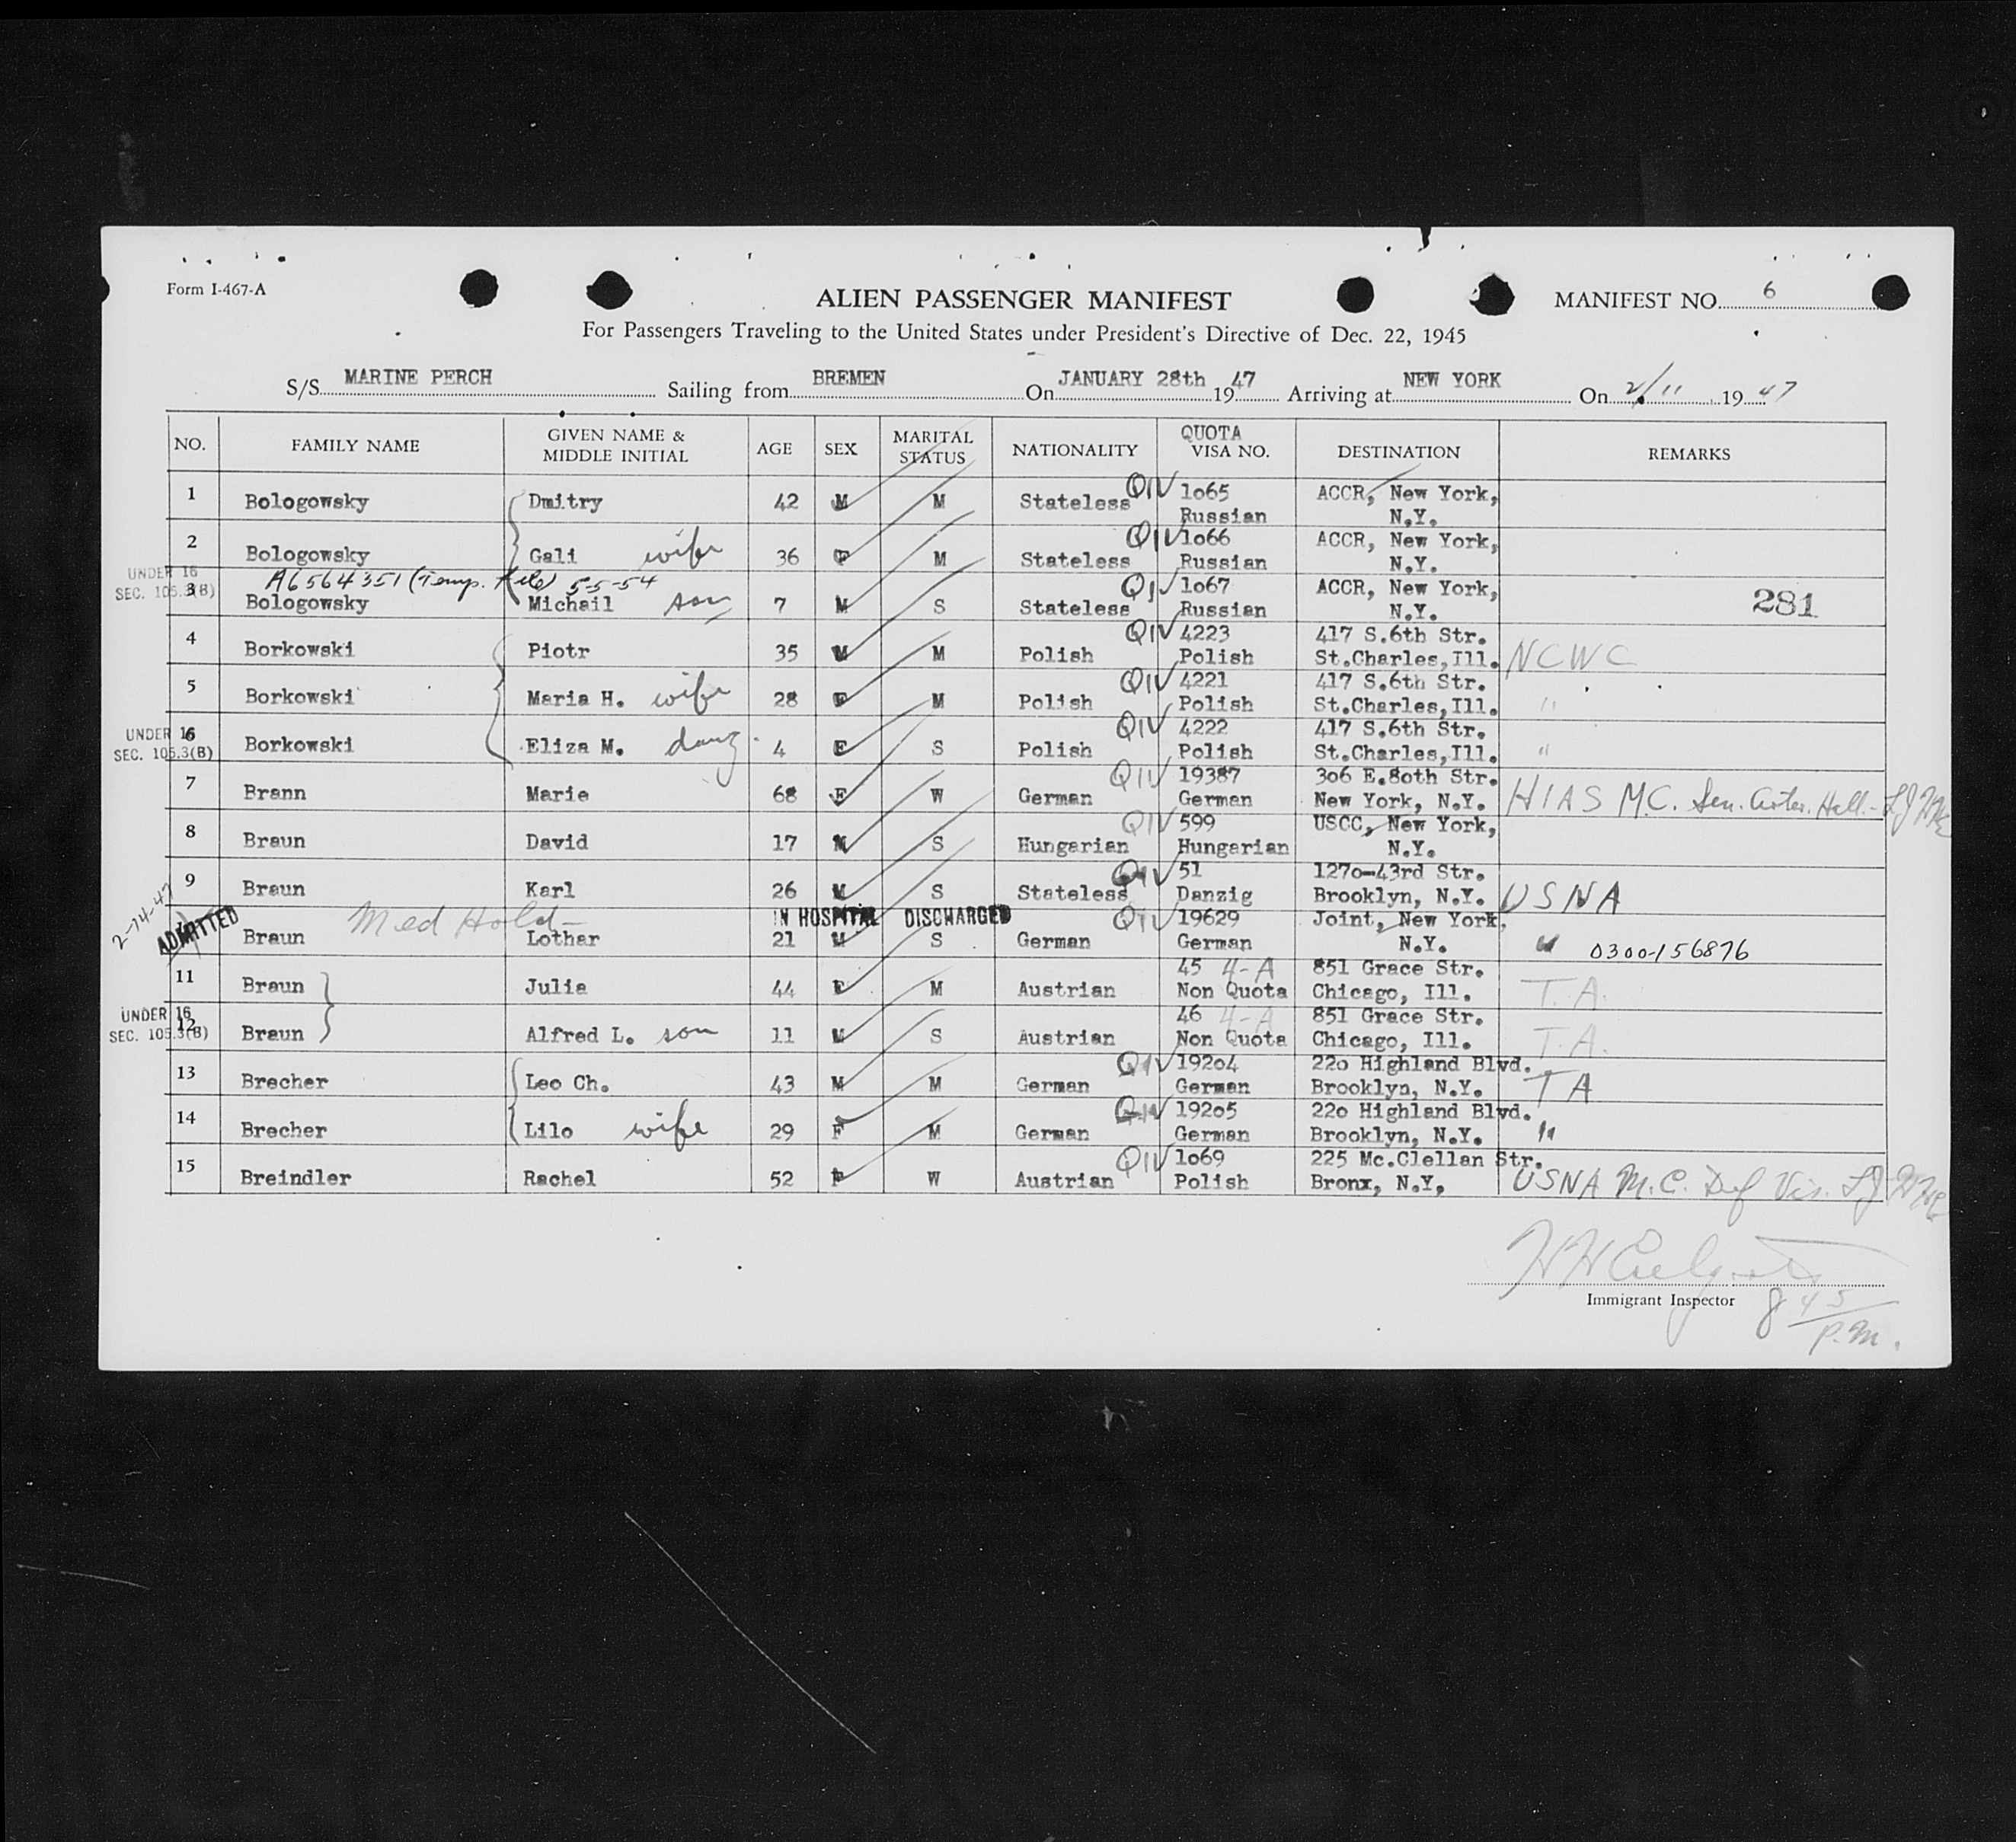 Form I-467-A
ALIEN PASSENGER MANIFEST
MANIFEST NO. 6
For Passengers Traveling to the United States under President's Directive of Dec. 22, 1945
S/S MARINE PERCH Sailing from BREMEN On JANUARY 28th 1947 Arriving at NEW YORK On 2/11 1947
NO. FAMILY NAME GIVEN NAME & MIDDLE INITIAL AGE SEX MARITAL STATUS NATIONALITY QUOTA VISA NO. DESTINATION REMARKS
1 Bologowsky Dmitry 42 M M Stateless QIV 1o65 ACCR, New York,
Russian N.Y.
2 Bologowsky Gali wife 36 F M Stateless QIV 1o66 ACCR, New York,
Russian N.Y.
UNDER 16
SEC. 105.3(B)
A6564351 (Temp. file) 5-5-54
3 Bologowsky Michail son 7 M S Stateless QIV 1o67 ACCR, New York,
Russian N.Y. 281
4 Borkowski Piotr 35 M M Polish QIV 4223 417 S.6th Str.
Polish St.Charles,Ill. NCWC
5 Borkowski Maria H. wife 28 F M Polish QIV 4221 417 S.6th Str.
Polish St.Charles,Ill. "
UNDER 16
SEC. 105.3(B)
6 Borkowski Eliza M. daug. 4 F S Polish QIV 4222 417 S.6th Str.
Polish St.Charles,Ill. "
7 Brann Marie 68 F W German QIV 19387 3o6 E.8oth Str.
German New York, N.Y. HIAS M.C. Sen. Arter.
8 Braun David 17 M S Hungarian QIV 599 USCC, New York,
Hungarian N.Y.
9 Braun Karl 26 M S Stateless QIV 51 127o-43rd Str.
Danzig Brooklyn, N.Y. USNA
2-14-47 ADMITTED Med Hold IN HOSPITAL DISCHARGED
Braun Lothar 21 M S German QIV 19629 Joint, New York,
German N.Y. " 0300-156876
11 Braun Julia 44 F M Austrian 45 4-A 851 Grace Str.
Non Quota Chicago, Ill. T.A.
UNDER 16
SEC. 105.3(B)
12 Braun Alfred L. son 11 M S Austrian 46 4-A 851 Grace Str.
Non Quota Chicago, Ill. T.A.
13 Brecher Leo Ch. 43 M M German QIV 192o4 22o Highland Blvd.
German Brooklyn, N.Y. TA
14 Brecher Lilo wife 29 F M German QIV 192o5 22o Highland Blvd.
German Brooklyn, N.Y. "
15 Breindler Rachel 52 F W Austrian QIV 1o69 225 Mc.Clellan Str.
Polish Bronx, N.Y, USNA M.C. Def Vis.
Immigrant Inspector
8 45/P.M.